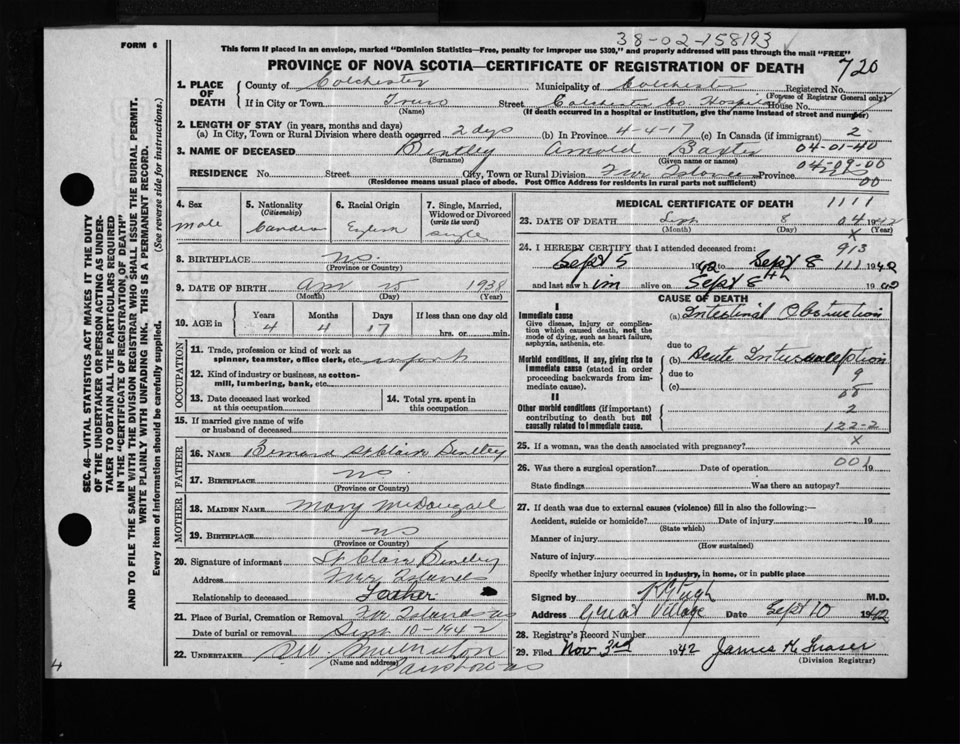 38-02-158193
FORM 6
This form if placed in an envelope, marked "Dominion Statistics—Free, penalty for improper use $300," and properly addressed will pass through the mail "FREE"
PROVINCE OF NOVA SCOTIA—CERTIFICATE OF REGISTRATION OF DEATH 720
1. PLACE OF DEATH County of Colchester Municipality of Colchester Registered No.
(For use of Registrar General only)
If in City or Town Truro Street Colchester Co Hospital House No.
(Name) (If death occurred in a hospital or institution, give the name instead of street and number)
2. LENGTH OF STAY (in years, months and days)
(a) In City, Town or Rural Division where death occurred 2 days (b) In Province 4-4-17 (c) In Canada (if immigrant) 2
04-01-40
3. NAME OF DECEASED Bentley Arnold Baxter
(Surname) (Given name or names)
04-09-00
RESIDENCE No. Street City, Town or Rural Division Five Islands Province
(Residence means usual place of abode. Post Office Address for residents in rural parts not sufficient)
00
4. Sex
male
5. Nationality
(Citizenship)
6. Racial Origin
English
7. Single, Married, Widowed or Divorced
(write the word)
single
8. BIRTHPLACE N.S.
(Province or Country)
9. DATE OF BIRTH 1938
(Month) (Day) (Year)
10. AGE in Years Months Days If less than one day old
4 4 17 hrs. or min.
OCCUPATION
11. Trade, profession or kind of work as
spinner, teamster, office clerk, etc.
12. Kind of industry or business, as cotton-
mill, lumbering, bank, etc.
13. Date deceased last worked
at this occupation
14. Total yrs. spent in
this occupation
15. If married give name of wife
or husband of deceased
FATHER
16. NAME Bernard St Clair Bentley
17. BIRTHPLACE N.S.
(Province or Country)
MOTHER
18. MAIDEN NAME Mary McDougall
19. BIRTHPLACE N.S.
(Province or Country)
20. Signature of informant St Clair Bentley
Address Five Islands
Relationship to deceased Father
21. Place of Burial, Cremation or Removal Five Islands NS
Date of burial or removal Sept 10-1942
22. UNDERTAKER
(Name and address)
MEDICAL CERTIFICATE OF DEATH 1111
23. DATE OF DEATH Sept 8 04 1942
(Month) (Day) (Year)
X
24. I HEREBY CERTIFY that I attended deceased from: 913
Sept 5 1942 to Sept 8 111 1942
and last saw him alive on Sept 8th 1942
CAUSE OF DEATH
I
Immediate cause
Give disease, injury or complica-
tion which caused death, not the
mode of dying, such as heart failure,
asphyxia, asthenia, etc.
(a) Intestinal Obstruction
due to
Morbid conditions, if any, giving rise to
immediate cause (stated in order
proceeding backwards from im-
mediate cause).
(b) Acute Intussusception
due to 9
(c) 08
II
Other morbid conditions (if important)
contributing to death but not
causally related to immediate cause.
2
122-2
X
25. If a woman, was the death associated with pregnancy?
26. Was there a surgical operation? Date of operation 001 19
State findings Was there an autopsy?
27. If death was due to external causes (violence) fill in also the following:—
Accident, suicide or homicide? Date of injury 19
(State which)
Manner of injury
(How sustained)
Nature of injury
Specify whether injury occurred in industry, in home, or in public place
Signed by M.D.
Address Great Village Date Sept 10 1942
28. Registrar's Record Number
29. Filed Nov 3rd 1942 James K Fraser
(Division Registrar)
SEC. 46—VITAL STATISTICS ACT MAKES IT THE DUTY
OF THE UNDERTAKER OR PERSON ACTING AS UNDER-
TAKER TO OBTAIN ALL THE PARTICULARS REQUIRED
IN THE "CERTIFICATE OF REGISTRATION OF DEATH"
AND TO FILE THE SAME WITH THE DIVISION REGISTRAR WHO SHALL ISSUE THE BURIAL PERMIT.
WRITE PLAINLY WITH UNFADING INK. THIS IS A PERMANENT RECORD.
Every item of information should be carefully supplied. (See reverse side for instructions.)